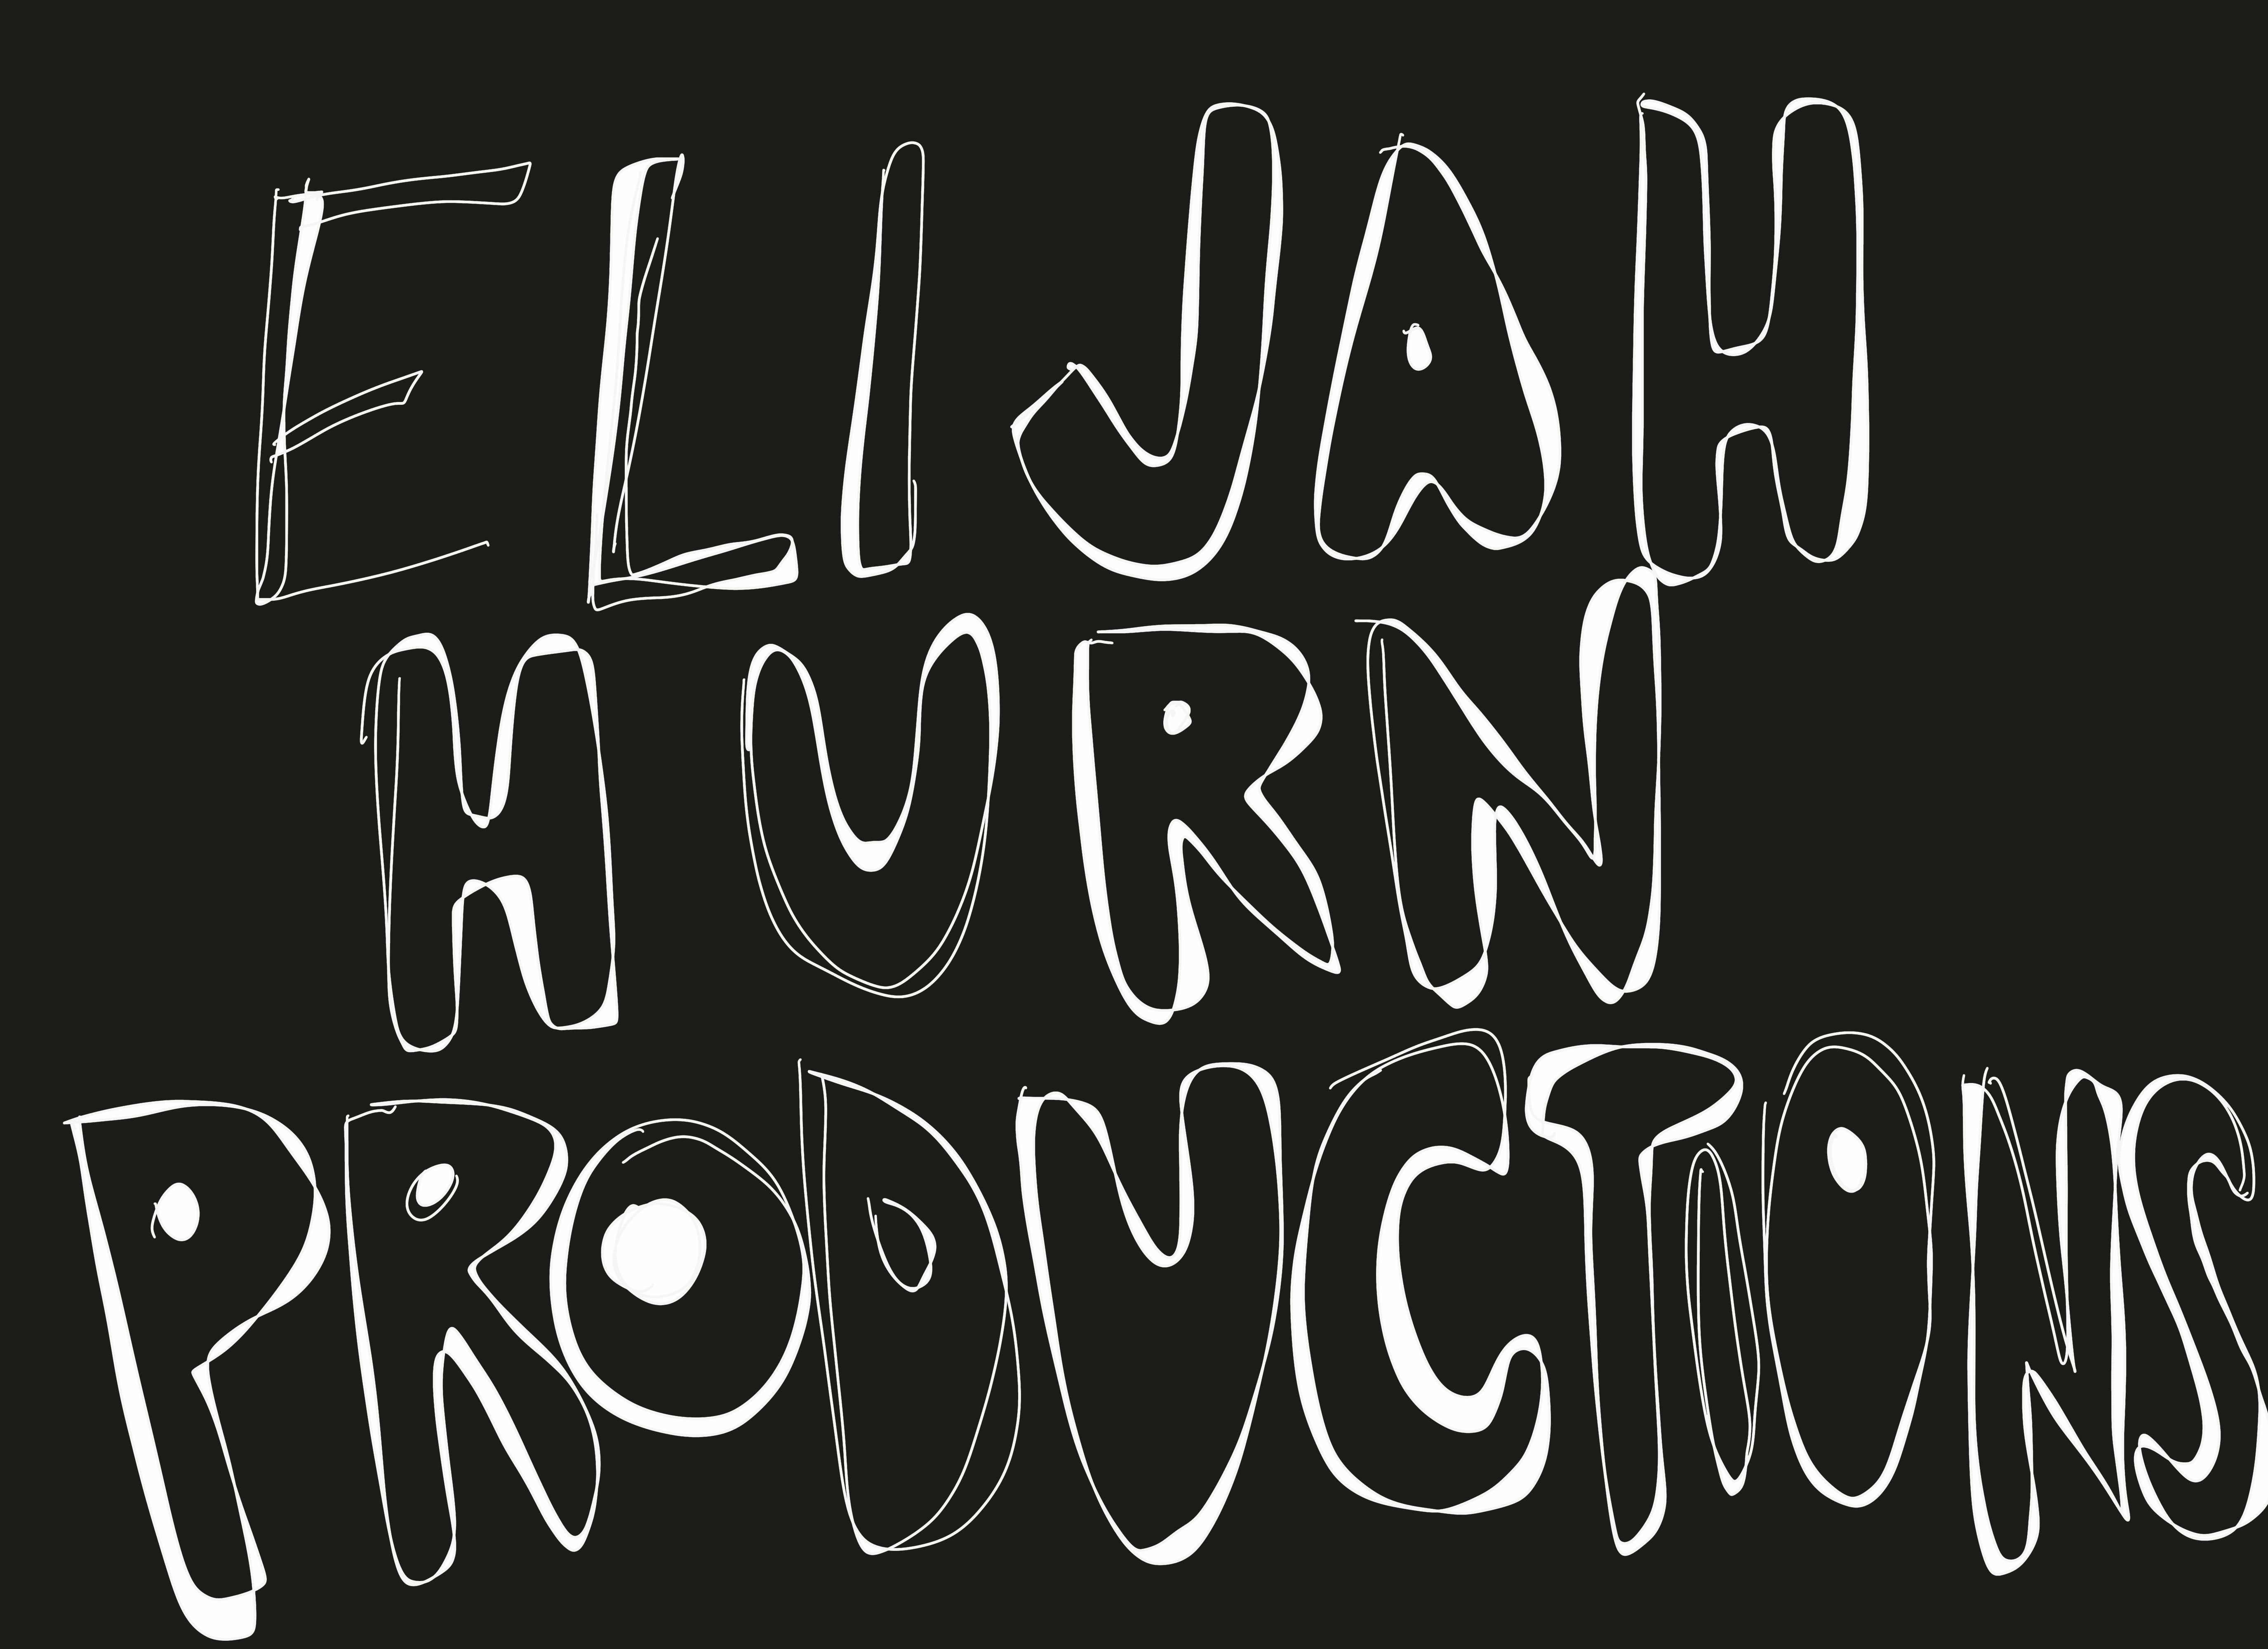 ELIJAH
HURN
PRODUCTIONS